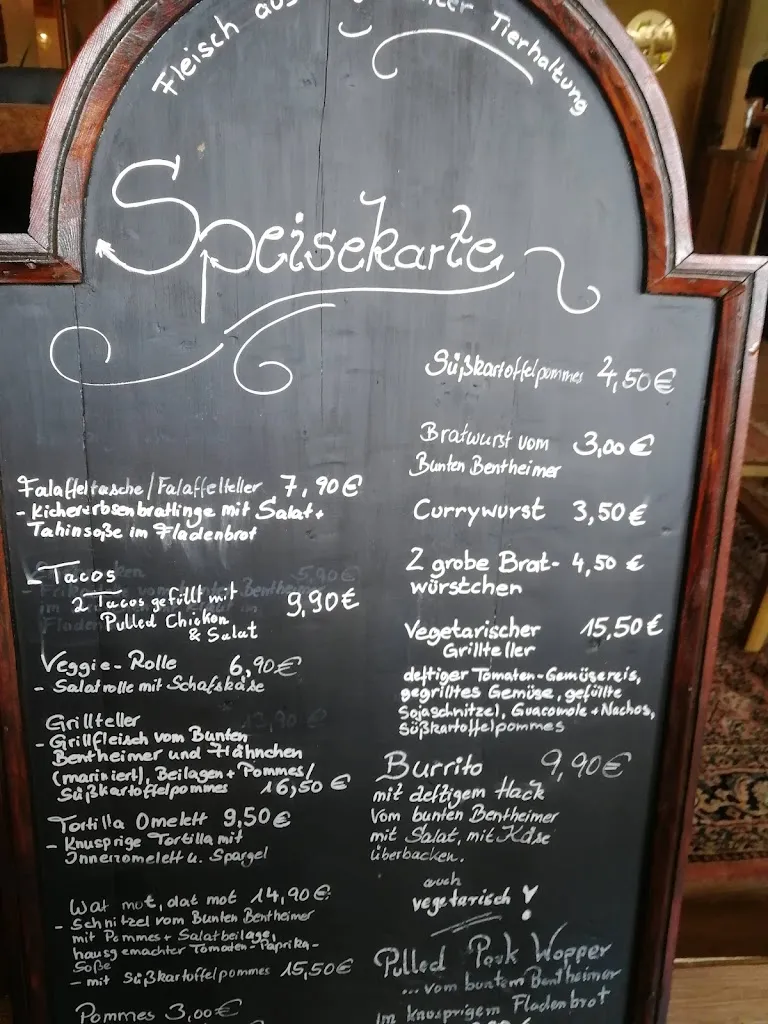 Fleisch aus Tierhaltung
Speisekarte
Falaffeltasche/Falaffelteller 7,90€
- Kichererbsenbratlinge mit Salat +
Tahinsoße im Fladenbrot
- Tacos
2 Tacos gefüllt mit 9,90€
Pulled Chicken
& Salat
Veggie-Rolle 6,90€
- Salatrolle mit Schafskäse
Grillteller
- Grillfleisch vom Bunten
Bentheimer und Hähnchen
(mariniert), Beilagen + Pommes/
Süßkartoffelpommes 16,50€
Tortilla Omelett 9,50€
- Knusprige Tortilla mit
Innenomelett u. Spargel
Wat mot, dat mot 14,90€
- Schnitzel vom Bunten Bentheimer
mit Pommes + Salatbeilage,
hausgemachter Tomaten-Paprika-
Soße
- mit Süßkartoffelpommes 15,50€
Pommes 3,00€
Süßkartoffelpommes 4,50€
Bratwurst vom 3,00€
Bunten Bentheimer
Currywurst 3,50€
2 grobe Brat- 4,50€
würstchen
Vegetarischer 15,50€
Grillteller
deftiger Tomaten-Gemüsereis,
gegrilltes Gemüse, gefüllte
Sojaschnitzel, Guacomole + Nachos,
Süßkartoffelpommes
Burrito 9,90€
mit deftigem Hack
vom bunten Bentheimer
mit Salat, mit Käse
überbacken.
auch
vegetarisch!
Pulled Pork Wopper
... vom buntem Bentheimer
im knusprigem Fladenbrot